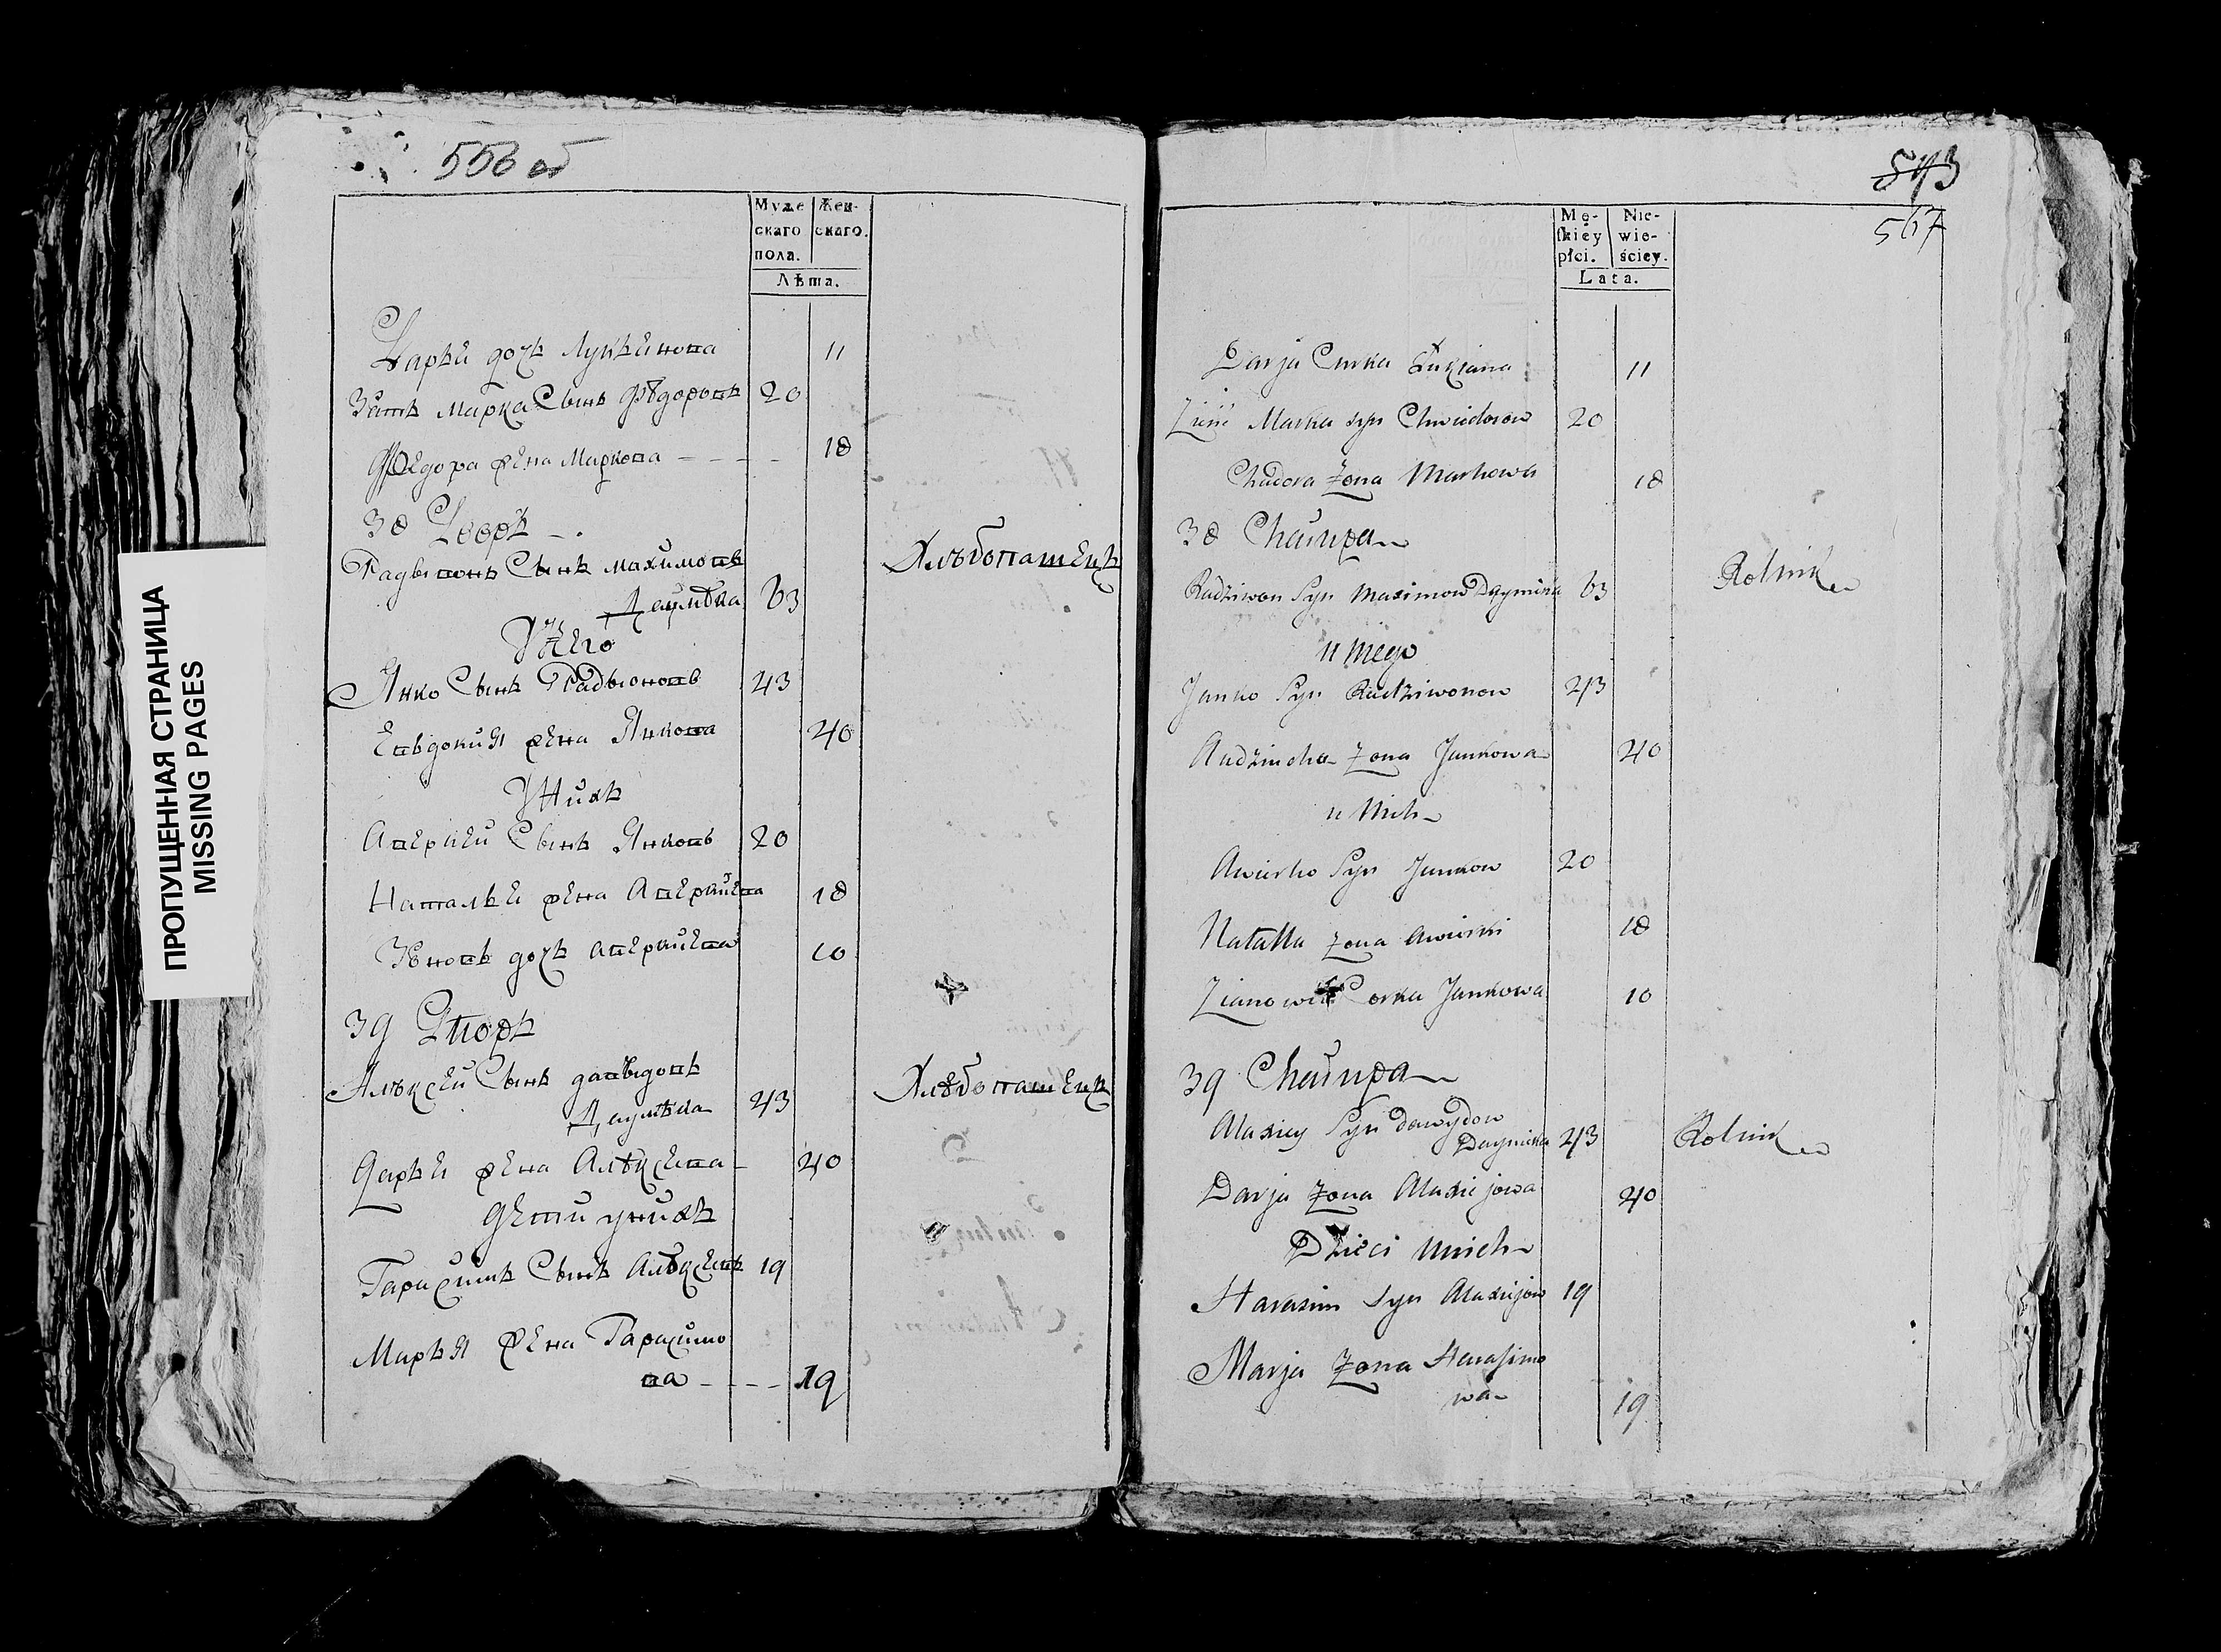 ПРОПУЩЕННАЯ СТРАНИЦА
MISSING PAGES
556 об
Муже скаго пола. Жен- скаго.
Лѣта.
Дарья дочь Лукьянова 11
Зять Марка Сынъ Фѣдоровъ 20
Федора жена Маркова - - - - 18
38 Дворъ
Радывонъ Сынъ махимовъ Хлѣбопашецъ
Даумѣка 63
У Него
Янко Сынъ Радывоновъ 43
Евъдокия жена Янкова 40
У Нихъ
Аверкей Сынъ Янковъ 20
Наталья жена Аверкиева 18
Зѣновь дочь аверкиева 10
39 Дворъ
Алѣксей Сынъ давыдовъ Хлѣбопашецъ
Даумѣка 43
Дарья жена Алѣксеева 40
Дети унихъ
Гарасимъ Сынъ Алѣксеевъ 19
Марья жена Гарасимо
ва - - - - 19
543
567
Mę- skiey płci. Nie- wie- ściey.
Lata.
Darja Curka Łukiana 11
Zięć Marka syn Chwiedorow 20
Chwiedora Zona Markowa 18
38 Chaiupa
Radziwon Syn Maximow Daymieka 63 Rolnik
u Niego
Janko Syn Radziwonow 43
Audziucha Zona Jankowa 40
u Nich
Awierko Syn Jankow 20
Natalla Zona Awierki 18
Zianowia Corka Jankowa 10
39 Chaiupa
Alaxiey Syn Dawydow
Daymieka 43 Rolnik
Darja Zona Alaxiejowa 40
Dzieci Unich
Harasim Syn Alaxiejow 19
Marja Zona Harasimo
wa 19